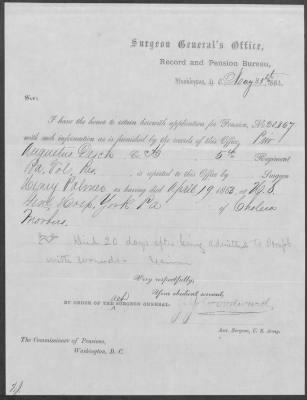 Surgeon General's Office,
Record and Pension Bureau,
Washington, D. C. May 31st 186 .
Sir:
I have the honor to return herewith application for Pension, No 20367
with such information as is furnished by the records of this Office Priv
Augustus Co 5th Regiment
Pa. Vol. Res. is reported to this Office by Surgeon
Henry Palmer as having died April 19 1863 at U.S.
Genl Hosp. York Pa of Cholera
Morbus.
Died 20 days after being admitted to Hospl
with wounds.
Very respectfully,
Your obedient servant,
BY ORDER OF THE actg SURGEON GENERAL:
J. J. Woodward
Ass. Surgeon, U. S. Army.
The Commissioner of Pensions,
Washington, D. C.